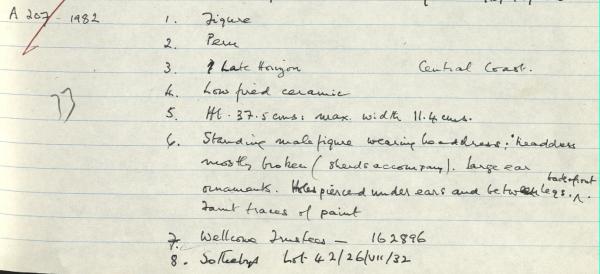 A 207 - 1982
1. Figure
2. Peru
3. ? Late Horizon Central Coast.
4. Low fired ceramic
5. Ht. 37.5 cms: max. width 11.4 cms.
6. Standing male figure wearing headdress: headdress
mostly broken (sherds accompany). Large ear
ornaments. Holes pierced under ears and between legs, back & front.
Faint traces of paint
7. Wellcome Trustees - 162896
8. Sothebys Lot 42/26/VII/32